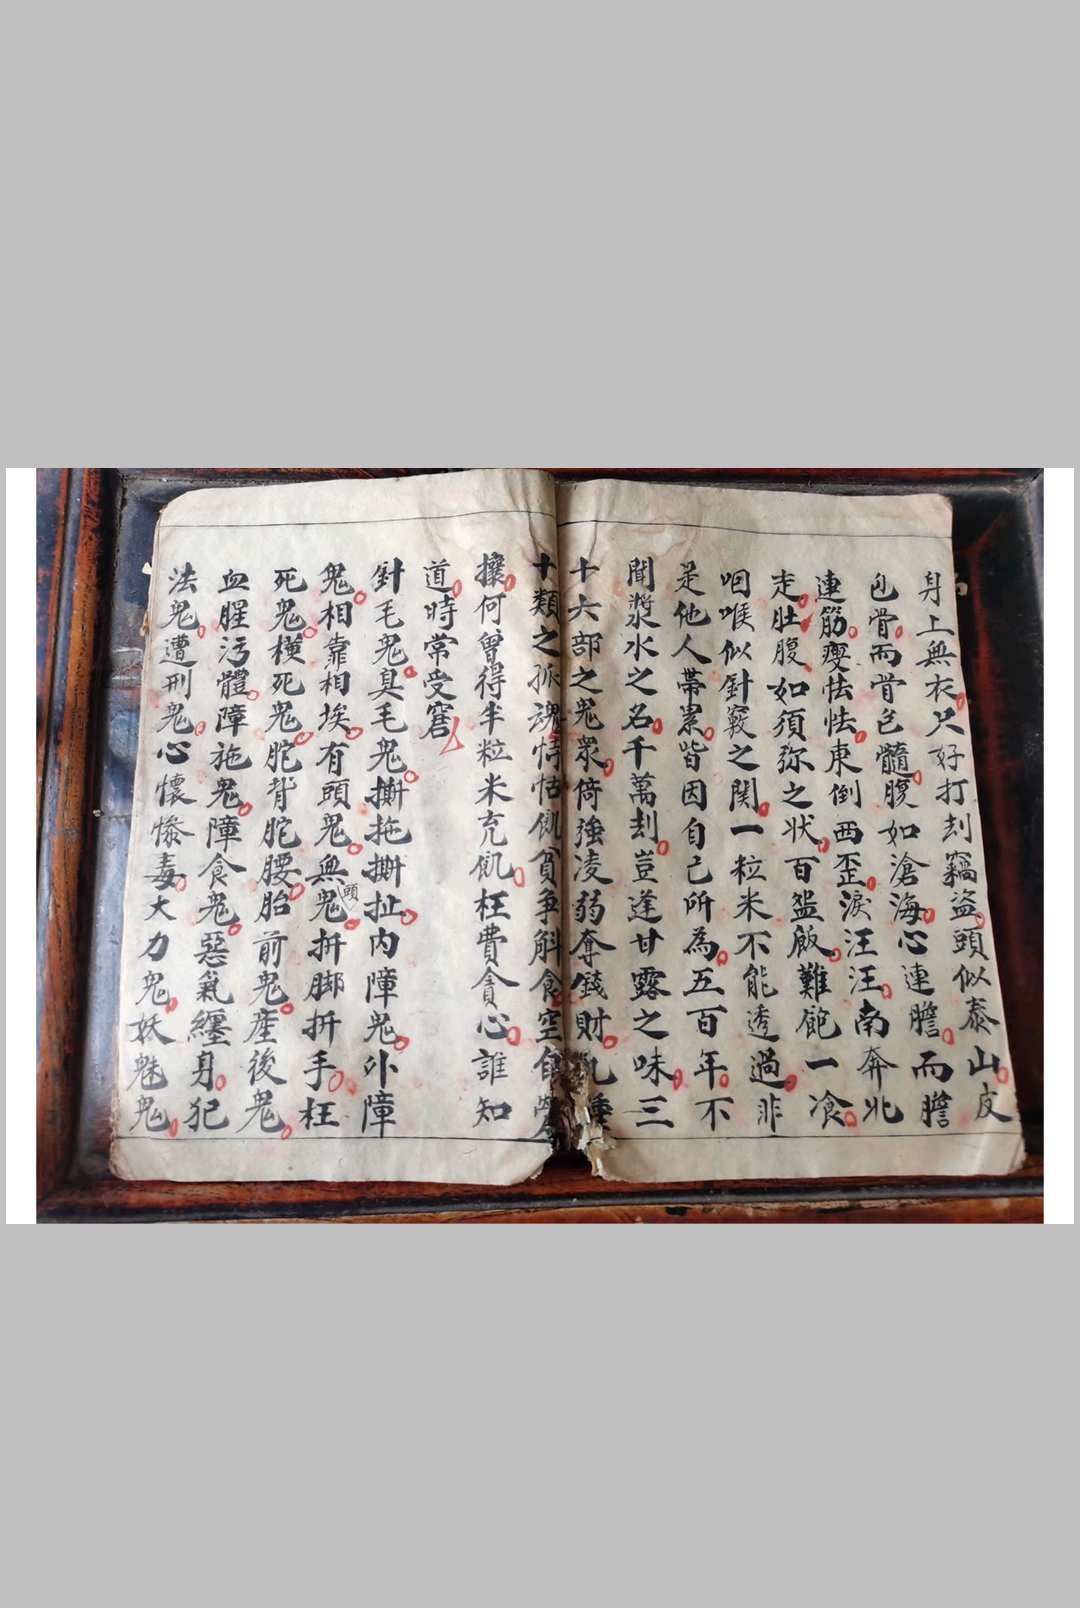 身上無衣只好打刦竊盗頭似泰山皮
包骨而骨包髓腹如滄海心連膽而膽
連筋癭怯怯東倒西歪淚汪汪南奔北
走肚腹如須弥之状百盌飯難飽一飡
咽喉似針竅之関一粒米不能透過非
是他人帶累皆因自己所為五百年不
聞漿水之名千萬刦豈逢甘露之味三
十六部之鬼衆倚強凌弱奪錢財九種
十類之孤魂恃怙飢貧争斛食空自
攘何曾得半粒米充飢枉費貪心誰知
道時常受窘
針毛鬼臭毛鬼撕拖撕扯内障鬼外障
鬼相靠相挨有頭鬼無頭鬼折脚折手枉
死鬼横死鬼駝背駝腰胎前鬼産後鬼
血腥污體障施鬼障食鬼惡氣纒身犯
法鬼遭刑鬼心懷慘毒大力鬼妖魅鬼